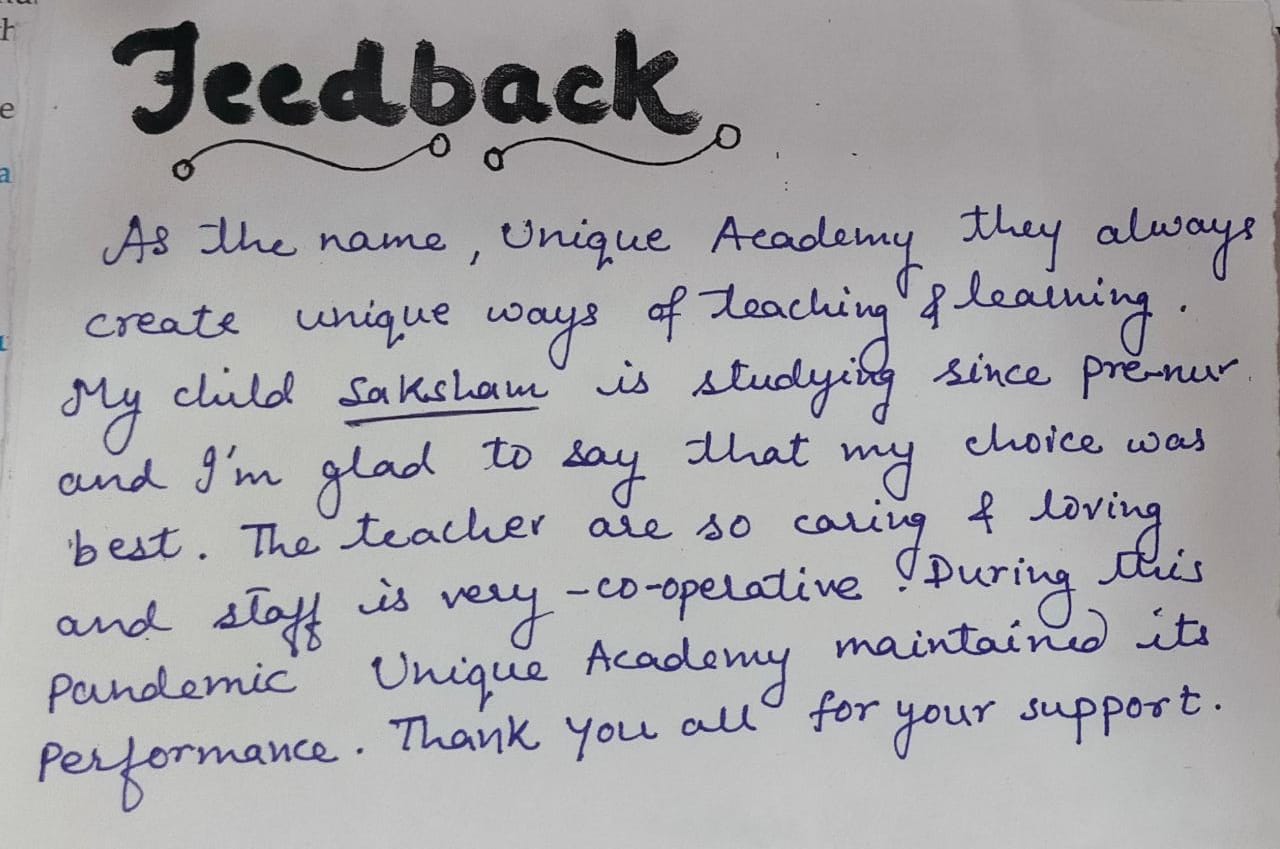 Feedback
As the name, Unique Academy they always
create unique ways of teaching & learning.
My child Saksham is studying since pre-nur.
and I'm glad to say that my choice was
best. The teacher are so caring & loving
and staff is very -co-operative. During this
Pandemic Unique Academy maintained its
Performance. Thank you all for your support.